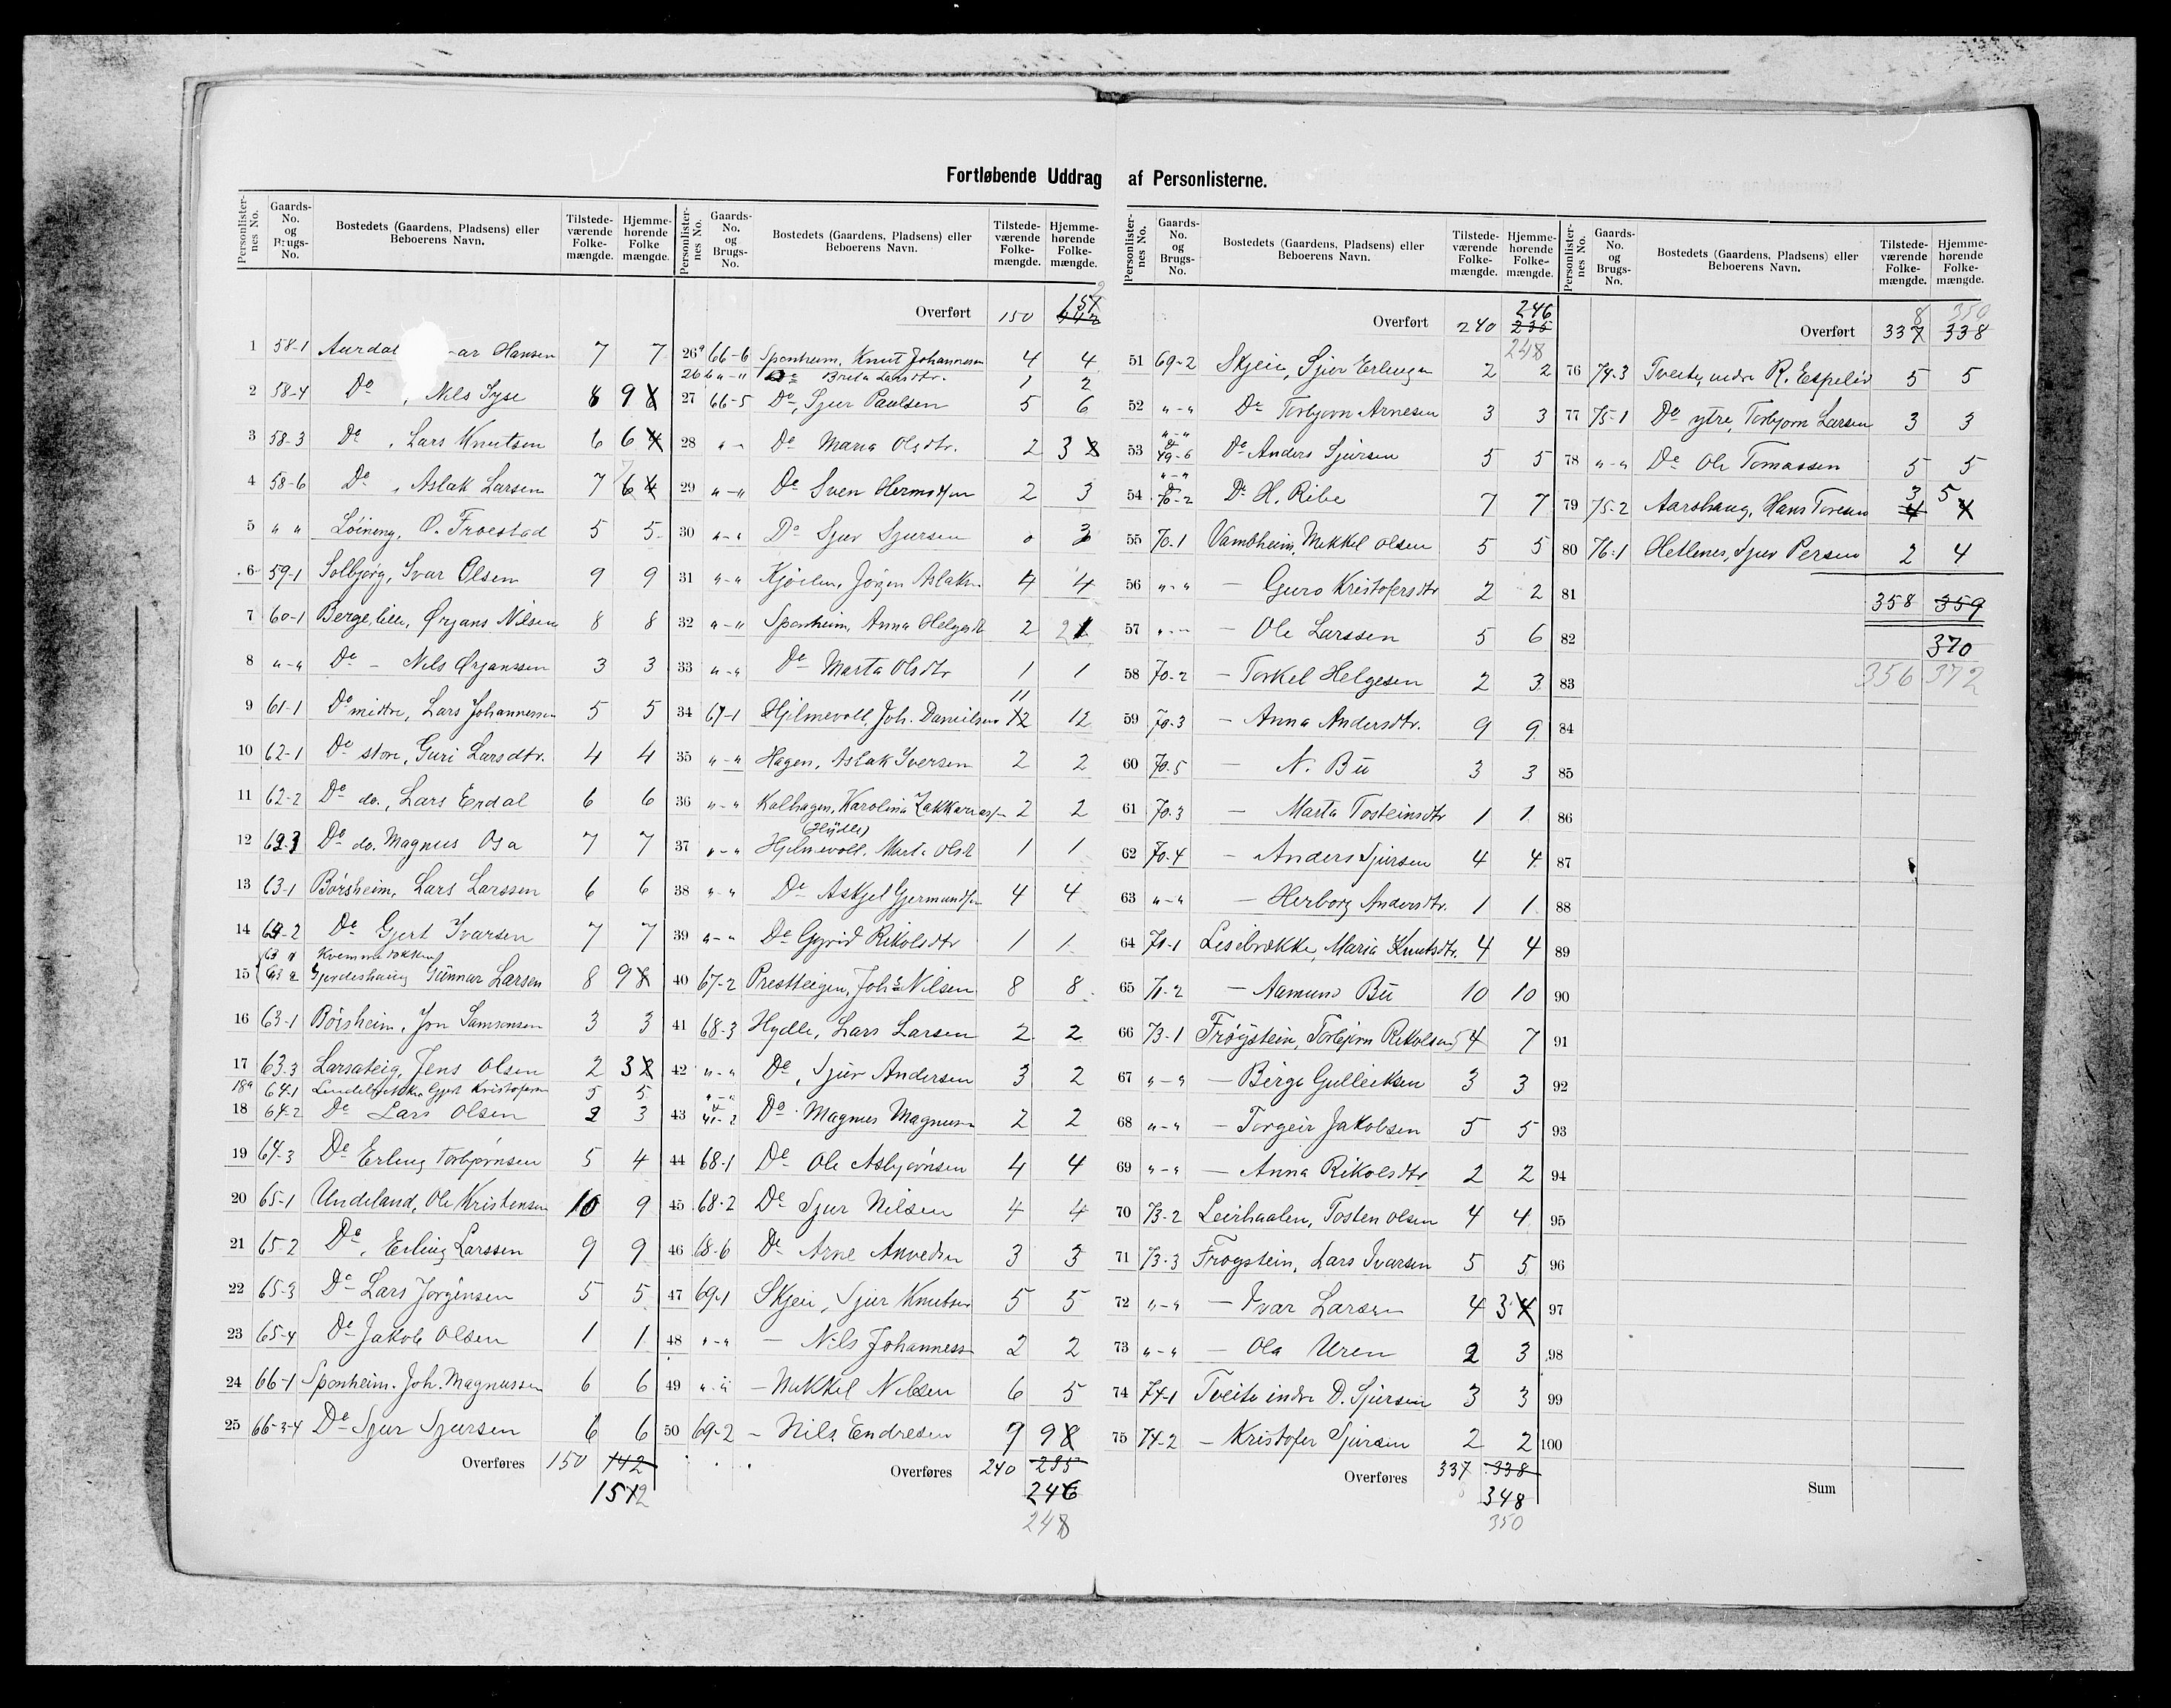 Fortløbende Uddrag af Personlisterne.
Personlister-nes No. Gaards-No. og Brugs-No. Bostedets (Gaardens, Pladsens) eller Beboerens Navn. Tilstede-værende Folke-mængde. Hjemme-hørende Folke mængde.
1 58-1 Aurdal ar Hansen 7 7
2 58-4 Do , Nils Syse 8 9
3 58-3 Do , Lars Knutsen 6 6
4 58-6 Do , Aslak Larsen 7 6
5 " " Löining, O. Froestad 5 5
6 59-1 Solbjörg, Ivar Olsen 9 9
7 60-1 Berge, lille, Ørjans Nilsen 8 8
8 "-" Do - Nils Ørjanssen 3 3
9 61-1 Do midtre, Lars Johannessen 5 5
10 62-1 Do store, Guri Larsdtr. 4 4
11 62-2 Do do., Lars Erdal 6 6
12 62-3 Do do. Magnus Osa 7 7
13 63-1 Börsheim, Lars Larssen 6 6
14 63-2 Do Gjert Ivarsen 7 7
15 Gjerdeshaug Gunnar Larsen 8 9
16 63-1 Börsheim, Jon Samsonsen 3 3
17 63-3 Larsateig, Jens Olsen 2 3
18a 64-1 Gjert Kristofersen 5 5
18 64-2 Do Lars Olsen 2 3
19 64-3 Do Erling Torbjörnsen 5 4
20 65-1 Undeland, Ole Kristensen 10 9
21 65-2 Do, Erling Larssen 9 9
22 65-3 Do Lars Jörginsen 5 5
23 65-4 Do Jakob Olsen 1 1
24 66-1 Sponheim. Joh. Magnussen 6 6
25 66-3-4 Do Sjur Sjursen 6 6
Overføres 150 142
1512
Personlister-nes No. Gaards-No. og Brugs-No. Bostedets (Gaardens, Pladsens) eller Beboerens Navn. Tilstede-værende Folke-mængde. Hjemme-hørende Folke-mængde.
Overført 150 151 2
26a 66-6 Sponheim, Knut Johannessen 4 4
26b "-" Do Brita Larsdtr. 1 2
27 66-5 Do, Sjur Paulsen 5 6
28 "-" Do Maria Olsdtr. 2 3
29 "-" Do Sven Hermodsen 2 3
30 "-" Do Sjur Sjursen 0 3
31 "-" Kjöelen, Jörgen Aslaks. 4 4
32 "-" Sponheim, Anna Helgesdtr 2 2
33 "-" Do Marta Olsdtr 1 1
11
34 67-1 Hjelmevoll, Joh. Danielsen 12 12
35 "-" Hagen, Aslak Iversen 2 2
36 "-" Kalhagen, Karolina Zakkarias 2 2
(Hydle)
37 "-" Hjelmevoll. Marta Olsdt 1 1
38 "-" Do Askjel Gjermundsen 4 4
39 "-" Do Gyrid Rikolsdtr 1 1
40 67-2 Prestteigen, Johs Nilsen 8 8
41 68-3 Hydle, Lars Larsen 2 2
42 "-" Do, Sjur Andersen 3 2
43 Do Magnus Magnussen 2 2
44 68-1 Do Ole Asbjörnsen 4 4
45 68-2 Do Sjur Nilsen 4 4
46 68-6 Do Arne 3 3
47 69-1 Skjeie, Sjur Knutsen 5 5
48 "-" - Nils Johanness 2 2
49 "-" - Mikkel Nilsen 6 5
50 69-2 - Nils Endresen 9 9
Overføres 240 235
246
248
Personlister-nes No. Gaards-No. og Brugs-No. Bostedets (Gaardens, Pladsens) eller Beboerens Navn. Tilstede-værende Folke-mængde. Hjemme-hørende Folke-mængde.
246
Overført 240 235
248
51 69-2 Skjeie, Sjur Erlingsen 2 2
52 "-" Do Torbjorn Arnesen 3 3
53 "-" 49-6 Do Anders Sjursen 5 5
54 "-" 70-2 Do H. Ribe 7 7
55 70-1 Vambheim, Mikkel Olsen 5 5
56 "-" - Guro Kristofersdtr 2 2
57 "-" - Ole Larssen 5 6
58 70-2 - Torkel Helgesen 2 3
59 70-3 - Anna Andersdtr. 9 9
60 70-5 - N. Bu 3 3
61 70-3 - Marta Tosteinsdtr 1 1
62 70-4 - Anders Sjursen 4 4
63 "-" - Herborg Andersdtr. 1 1
64 71-1 Lisebrekke, Maria Knutsdtr. 4 4
65 71-2 - Aamund Bu 10 10
66 73-1 Frøystein, Torbjörn Rikolsen 4 7
67 "-" - Börge Gulleiksen 3 3
68 "-" - Torgeir Jakobsen 5 5
69 "-" - Anna Rikolsdtr 2 2
70 73-2 Leirhaalen, Tosten Olsen 4 4
71 73-3 Froystein, Lars Ivarsen 5 5
72 "-" - Ivar Larsen 4 3
73 "-" - Ola Uren 2 3
74 74-1 Tveito indre D. Sjursen 3 3
75 74-2 - Kristofer Sjursen 2 2
Overføres 337 338
348
350
Personlister-nes No. Gaards-No. og Brugs-No. Bostedets (Gaardens, Pladsens) eller Beboerens Navn. Tilstede-værende Folke-mængde. Hjemme-hørende Folke-mængde.
8 350
Overført 337 338
76 74.3 Tveito, indre R. Espeliø 5 5
77 75-1 Do ytre, Torbjorn Larsen 3 3
78 "-" Do Ole Tomassen 5 5
79 75-2 Aarshaug, Hans Toresen 3 5
80 76-1 Hetlenes, Sjur Persen 2 4
81 358 359
82 370
83 356 372
84
85
86
87
88
89
90
91
92
93
94
95
96
97
98
99
100
Sum